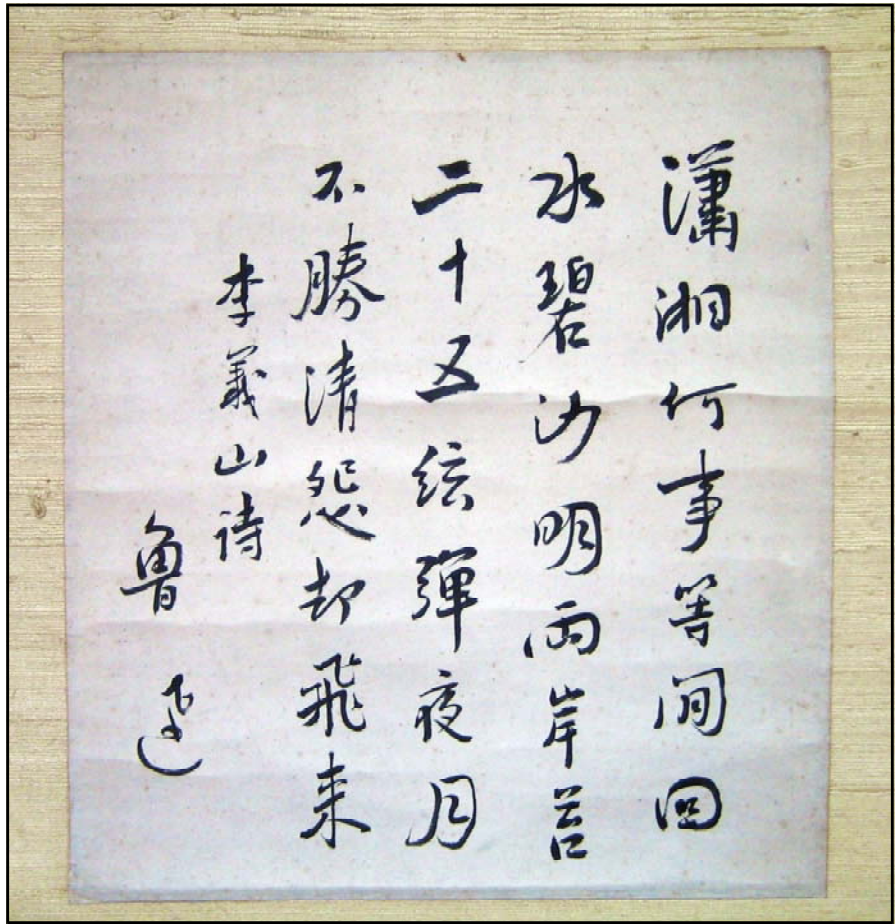 瀟湘何事等闲回
水碧沙明两岸苔
二十五弦彈夜月
不勝清怨却飛来
李義山诗
魯迅